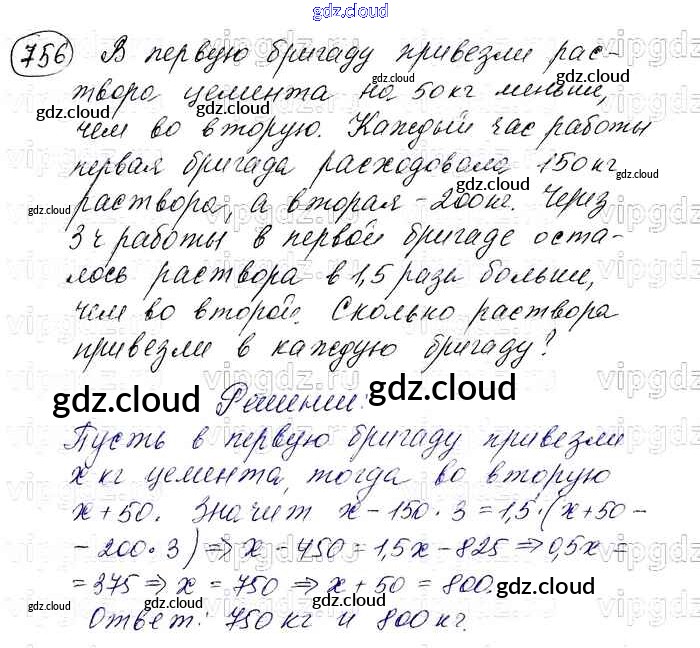 gdz.cloud
756 В первую бригаду привезли рас-
твора цемента на 50 кг меньше,
чем во вторую. Каждый час работы
первая бригада расходовала 150 кг
раствора, а вторая - 200 кг. Через
3 ч работы в первой бригаде оста-
лось раствора в 1,5 раза больше,
чем во второй. Сколько раствора
привезли в каждую бригаду?
gdz.cloud Решение: gdz.cloud
Пусть в первую бригаду привезли
x кг цемента, тогда во вторую
x + 50. Значит x - 150 · 3 = 1,5 · (x + 50 -
- 200 · 3) ⇒ x - 450 = 1,5x - 825 ⇒ 0,5x =
= 375 ⇒ x = 750 ⇒ x + 50 = 800.
Ответ: 750 кг и 800 кг.